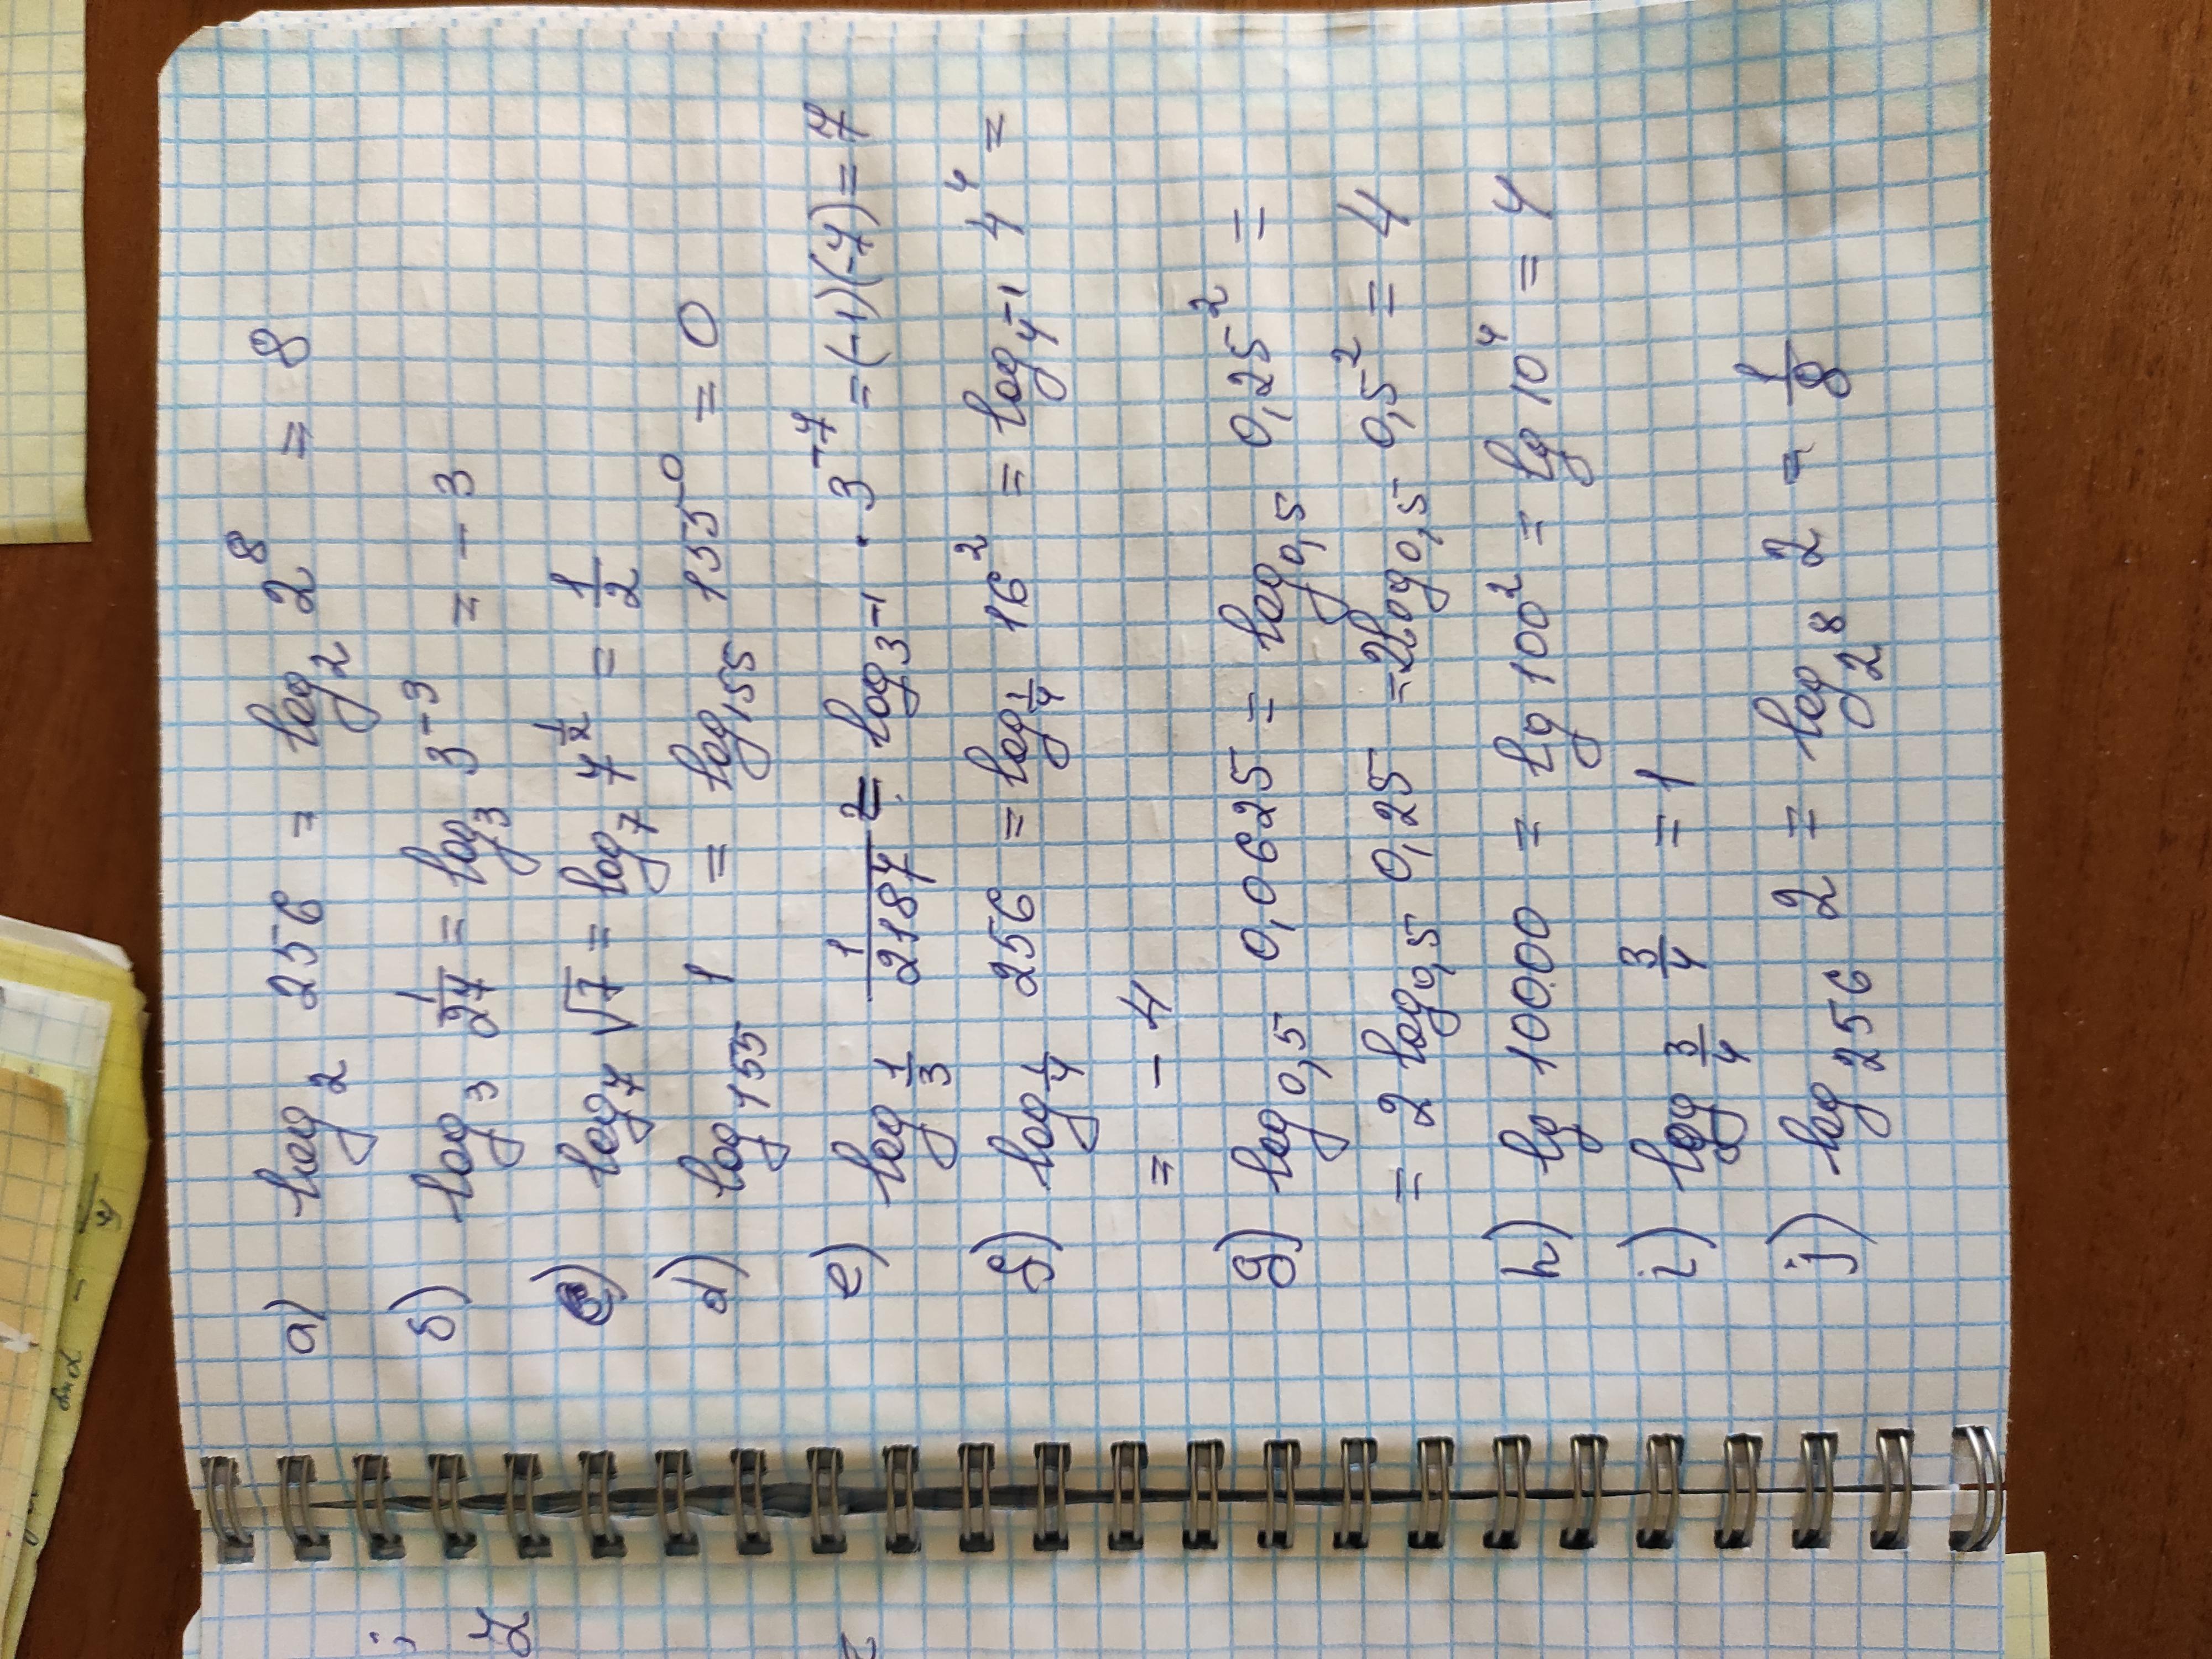 a) log₂ 256 = log₂ 2⁸ = 8
б) log₃ 1/27 = log₃ 3⁻³ = - 3
c) log₇ √7 = log₇ 7^½ = 1/2
d) log₁₅₅ 1 = log₁₅₅ 155⁰ = 0
e) log_1/3 1/2187 = log₃⁻¹ · 3⁻⁷ = (-1)(-7) = 7
f) log_1/4 256 = log_1/4 16² = log₄⁻¹ 4⁴ =
= - 4
g) log₀,₅ 0,0625 = log₀,₅ 0,25² =
= 2 log₀,₅ 0,25 = 2log₀,₅ 0,5² = 4
h) lg 10000 = lg 100² = lg 10⁴ = 4
i) log_3/4 3/4 = 1
j) log₂₅₆ 2 = log₂⁸ 2 = 1/8